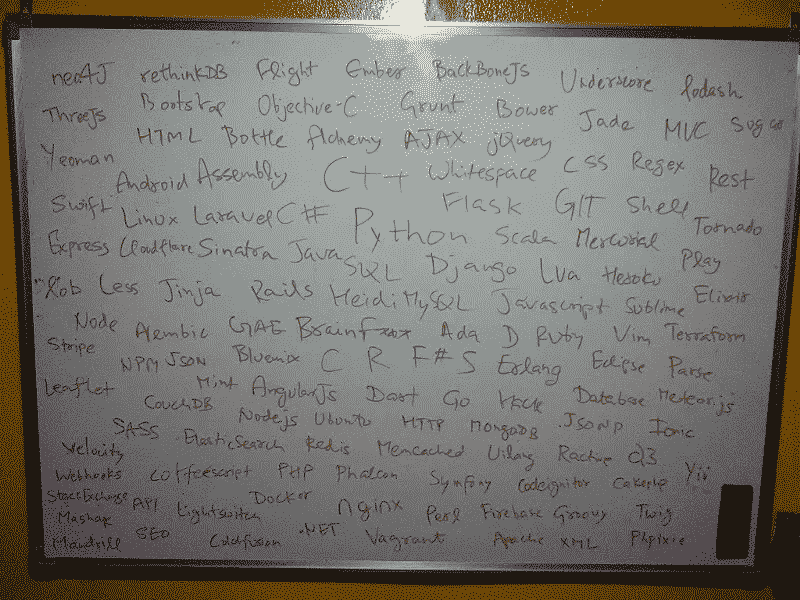 neo4J rethinkDB Flight Ember BackBoneJs Underscore lodash
ThreeJs Bootstrap Objective-C Grunt Bower Jade MVC
Yeoman HTML Bottle Alchemy AJAX jQuery
Android Assembly C++ Whitespace CSS Regex Rest
Swift Linux Laravel C# Python Flask GIT Shell
Express Cloudflare Sinatra Java Scala Mercurial Tornado
SQL Django Lua Heroku Play
Less Jinja Rails HeidiMySQL Javascript Sublime Elixir
Node Alembic GAE BrainFxxx Ada D Ruby Vim Terraform
Stripe NPM JSON Bluemix C R F# S Erlang Eclipse Parse
Leaflet Mint AngularJs Dart Go Hack Database Meteor.js
CouchDB Nodejs Ubuntu HTTP MongoDB JSONP Ionic
SASS ElasticSearch Redis Memcached d3
Velocity
Webhooks Coffeescript PHP Phalcon Symfony Codeignitor Cakephp Yii
StackExchange API Lightswitch Docker nginx Perl Firebase Groovy Twig
Mashape
Mandrill SEO Coldfusion .NET Vagrant Apache XML Phpixie